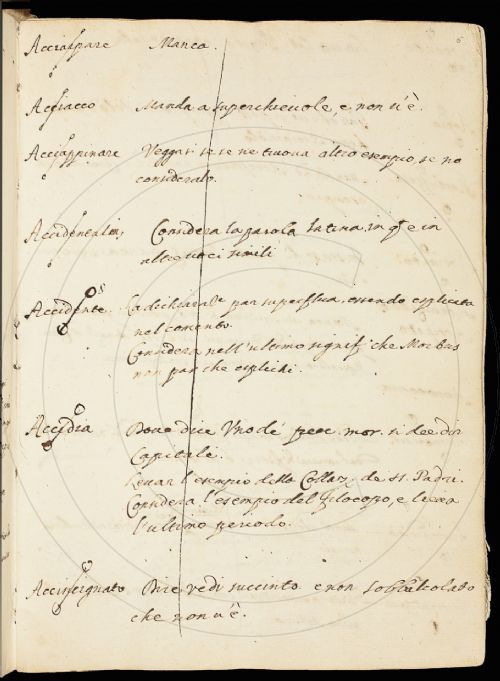 Acciarpare Manca.
Acciacco Manda a superchievole, e non v'è.
Acciappinare Veggasi se se ne truova altro esempio, se no
consideralo.
Accidentalm. Considera la parola latina, in q.ta e in
altre voci simili
Accidente. La dichiaraz. par superflua, essendo esplicata
nel contenuto.
Considera nell'ultimo signif. che Morbus
non par che esplichi.
Accidia Dove dice Uno de' pecc. mor. si dee dir
Capitale.
Levar l'esempio delle Collaz. de SS. Padri.
Considera l'esempio del Filocopo, e leva
l'ultimo periodo.
Accincignato Dice vedi succinto e non
che non v'è.